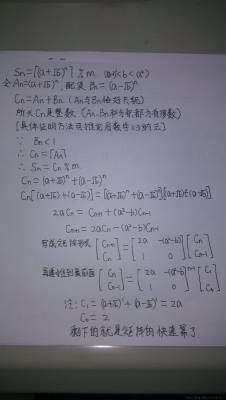 Sn=⌈(a+√b)ⁿ⌉ % m
令An=(a+√b)ⁿ, 配装 Bn=(a-√b)ⁿ
Cn=An+Bn (An与Bn恰好共轭)
所以Cn是整数
[具体证明方法可
∵ Bn<1
∴ Cn=⌈An⌉
∴ Sn=Cn%m
Cn=(a+√b)ⁿ+(a-√b)ⁿ
Cn[(a+√b)+(a-√b)]=[(a+√b)ⁿ+(a-√b)ⁿ][(a+√b)+(a-√b)]
2aCn=Cn+1+(a²-b)Cn-1
Cn+1=2aCn-(a²-b)Cn-1
写成矩阵形式 [Cn+1 Cn]=[2a -(a²-b)][Cn
Cn-1]
1 0
[Cn Cn-1]=[2a -(a²-b)]ⁿ⁻¹[C1
C0]
1 0
注: C1=(a+√b)¹+(a-√b)¹=2a
C0=2
剩下的就是矩阵的快速幂了